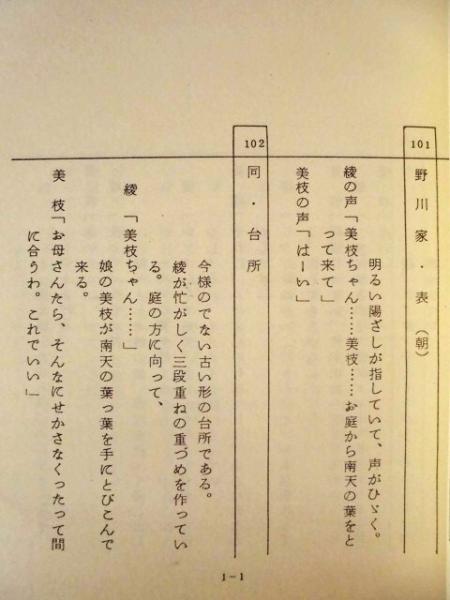 101
野川家・表(朝)
明るい陽ざしが指していて、声がひゞく。
綾の声「美枝ちゃん……美枝……お庭から南天の葉をと
って来て」
美枝の声「はーい」
102
同・台所
今様のでない古い形の台所である。
綾が忙がしく三段重ねの重づめを作ってい
る。庭の方に向って、
綾「美枝ちゃん……」
娘の美枝が南天の葉っ葉を手にとびこんで
来る。
美枝「お母さんたら、そんなにせかさなくったって間
に合うわ。これでいい」
1-1